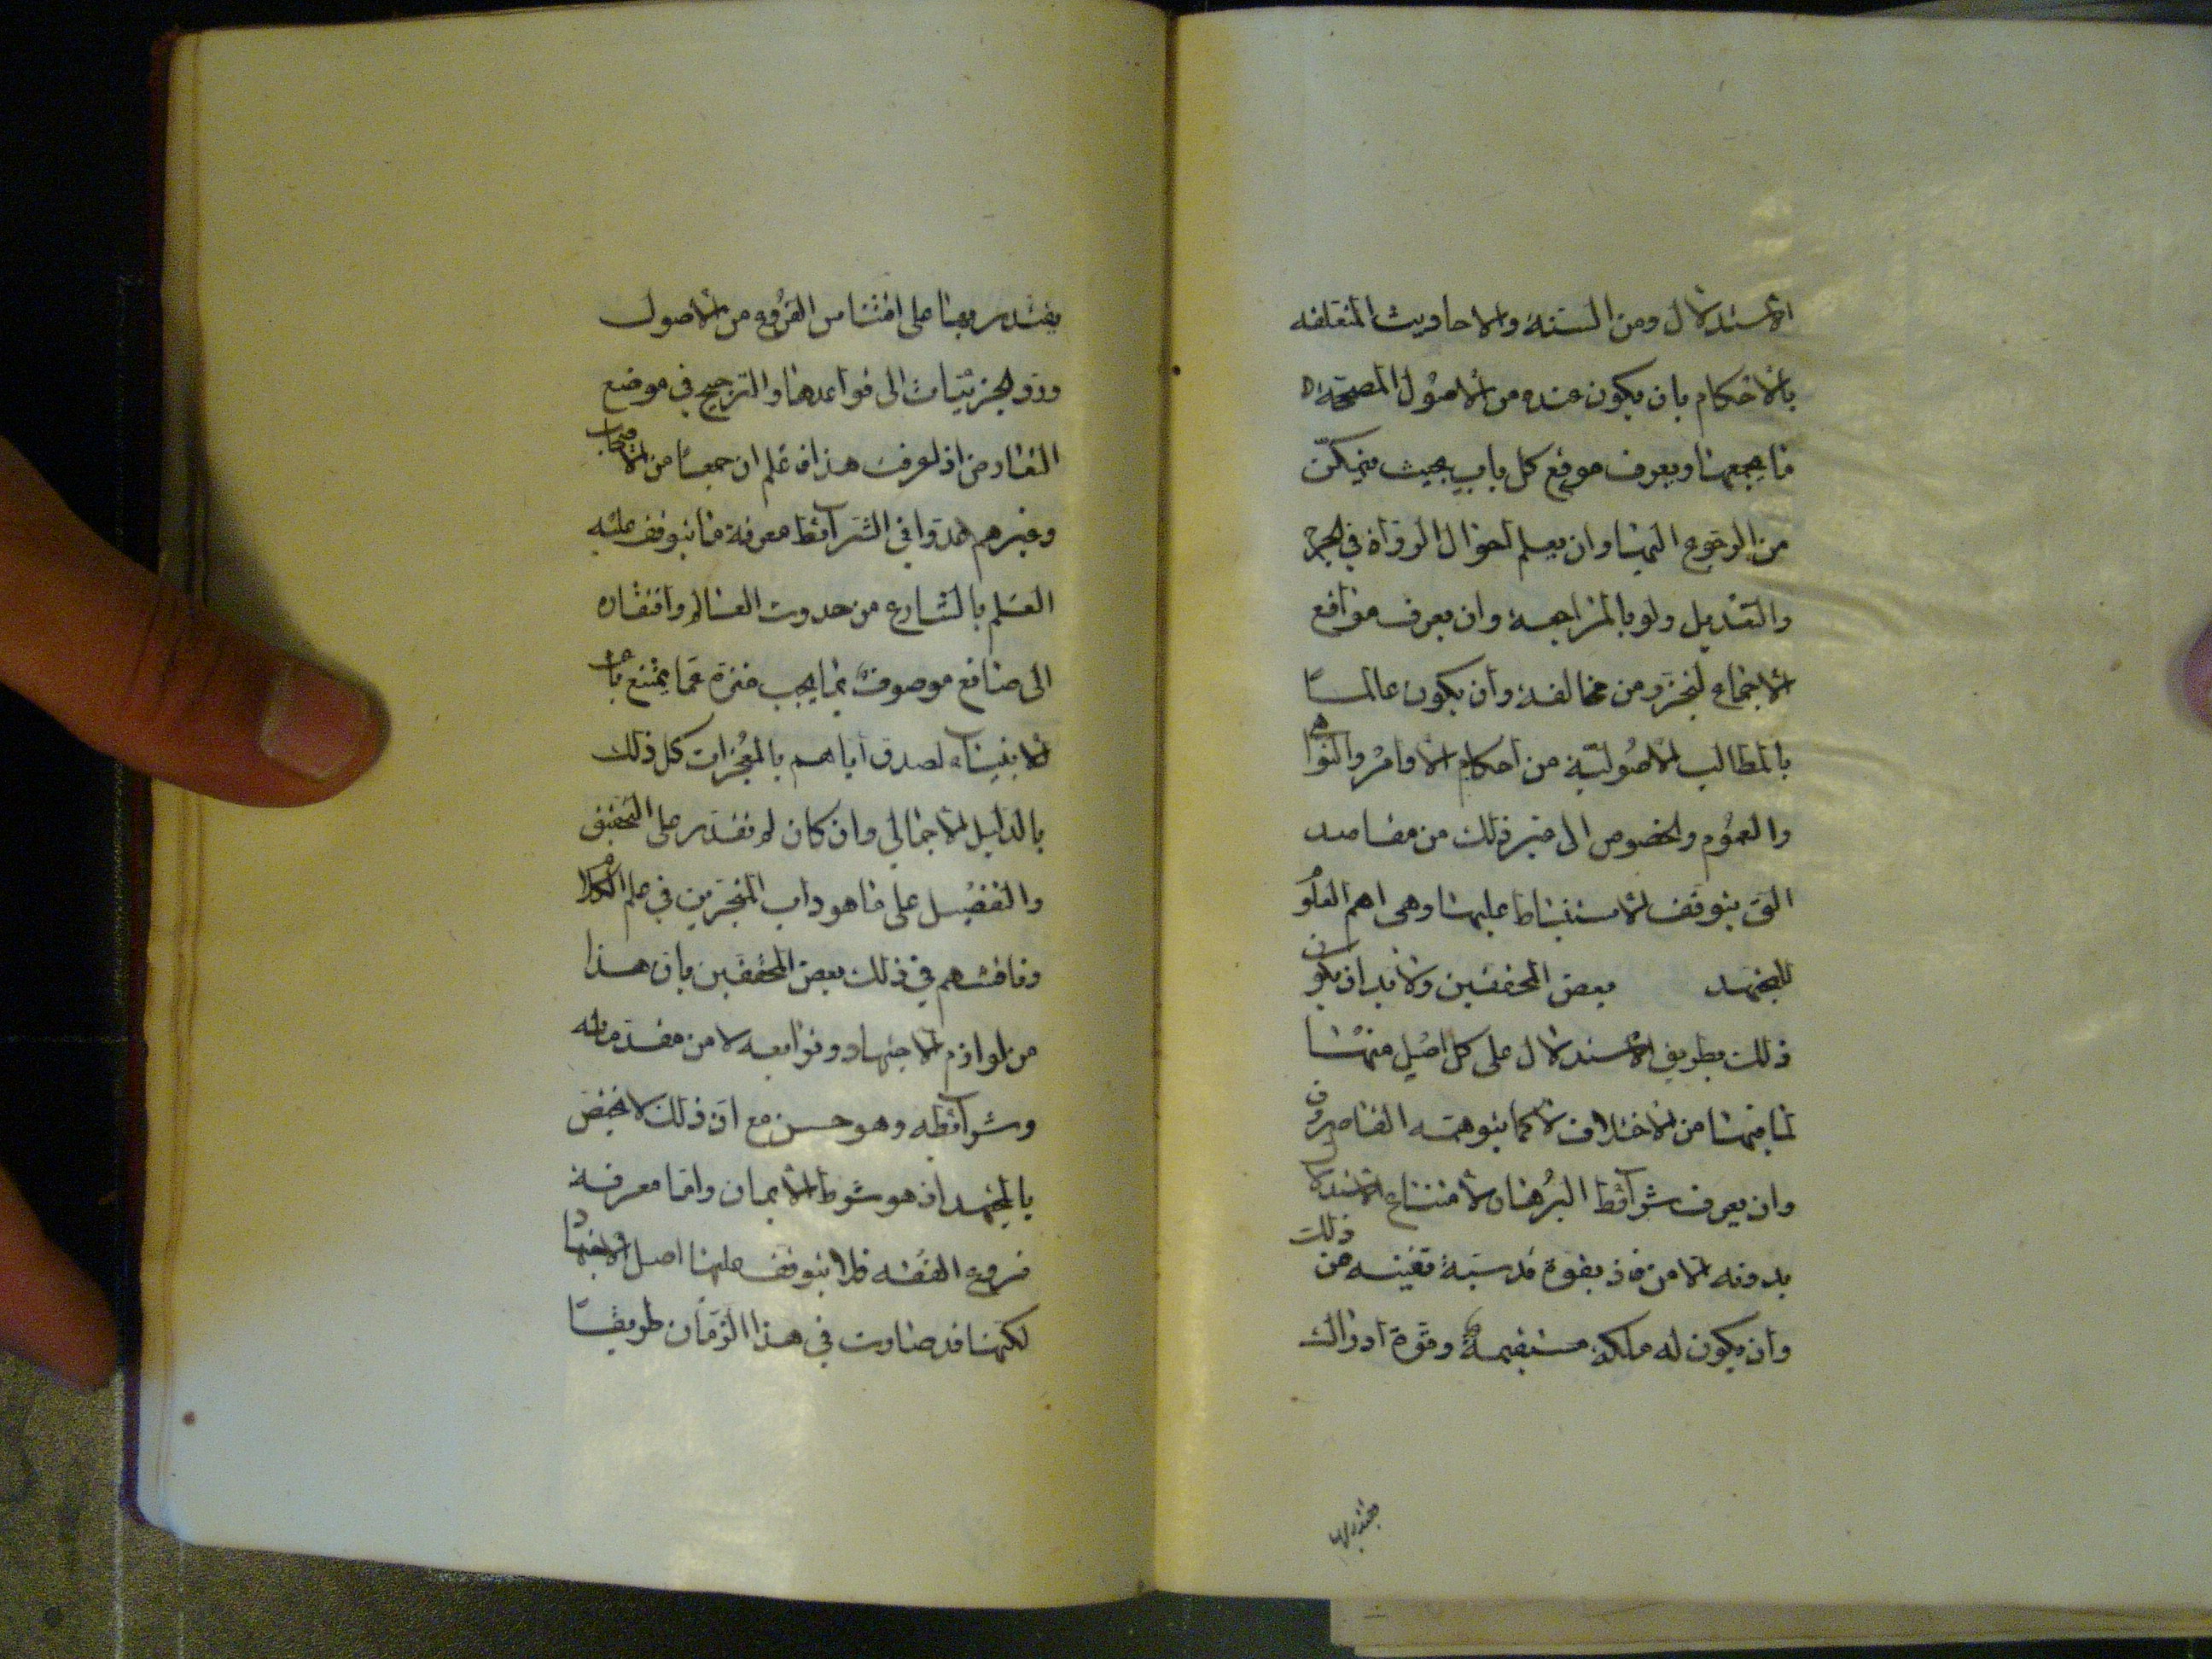 الاستدلال ومن السنة والاحاديث المتعلقه
بالاحكام بان يكون عنده من الاصول المصححة
ما يجمعها ويعرف موقع كل باب بحيث يتمكن
من الرجوع اليها وان يعلم احوال الرواة في الجرح
والتعديل ولو بالمراجعة وان يعرف مواقع
الاجماع ليتحرز من مخالفته وان يكون عالما
بالمطالب الاصولية من احكام الاوامر والنواهي
والعموم والخصوص الى غير ذلك من مقاصد
التي يتوقف الاستنباط عليها وهي اهم العلوم
للمجتهد بعض المحققين ولا بد ان يكون
ذلك بطريق الاستدلال على كل اصل منها
لما فيها من الاختلاف لا كما يتوهمه القاصرون
وان يعرف شرائط البرهان لامتناع الاستدلال
بدونه الا من فاز بقوة قدسية تغنيه عن ذلك
وان يكون له ملكة مستقيمة وقوة ادراك
يقتدر بها على اقتناص الفروع من الاصول
ورد الجزئيات الى قواعدها والترجيح في موضع
التعارض اذ اعرفت هذا فاعلم ان جمعا من الاصحاب
وغيرهم عدوا في الشرائط معرفة ما يتوقف عليه
العلم بالشارع من حدوث العالم وافتقاره
الى صانع موصوف بما يجب منزه عما يمتنع باعث
الانبياء لصدق اياهم بالمعجزات كل ذلك
بالدليل الاجمالي وان كان لم نقدر على التحقيق
والتفصيل على ما هو داب المتبحرين في علم الكلام
وناقشهم في ذلك بعض المحققين بان هذا
من لوازم الاجتهاد وتوابعه لا من مقدماته
وشرائطه وهو حسن مع ان ذلك لا يختص
بالمجتهد اذ هو شرط الايمان واما معرفة
فروع الفقه فلا يتوقف عليها اصل الاجتهاد
لكنها قد صارت في هذا الزمان طريقا